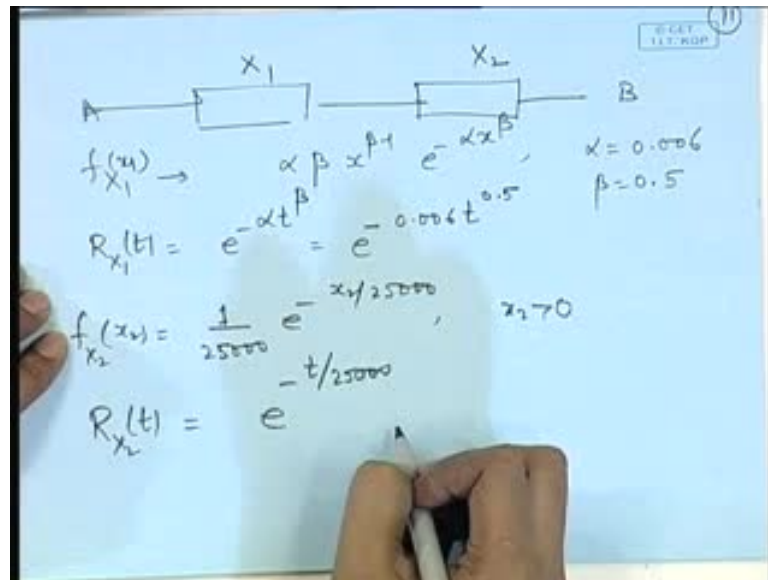 11
© CET
I.I.T. KGP
X₁ X₂
A B
f_{X₁}(x₁) → α β x^{β-1} e^{-αx^β}, α = 0.006
β = 0.5
R_{X₁}(t) = e^{-αt^β} = e^{-0.006t^{0.5}}
f_{X₂}(x₂) = 1/25000 e^{-x₂/25000}, x₂>0
R_{X₂}(t) = e^{-t/25000}